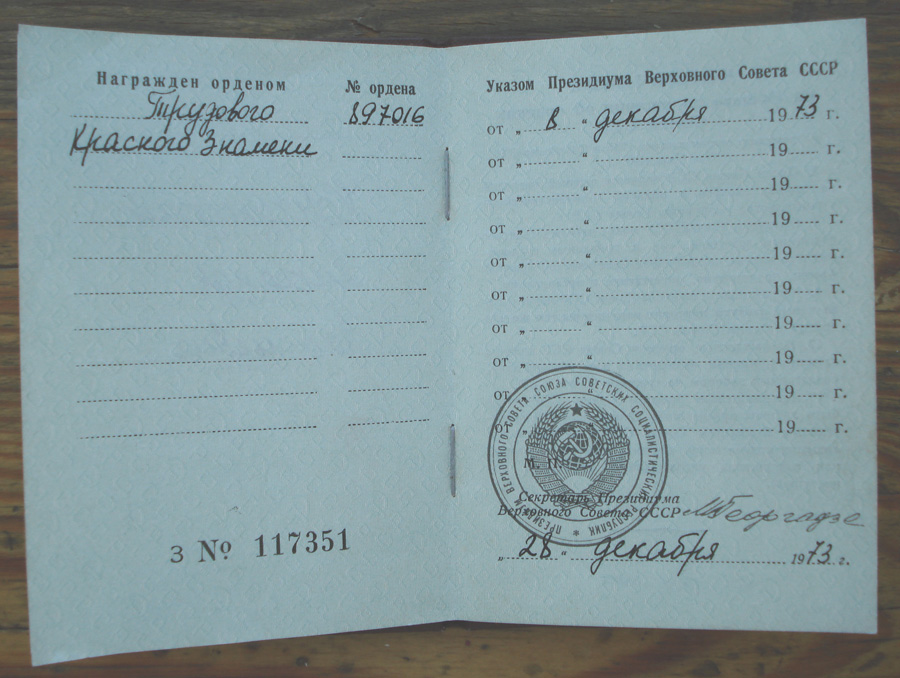 Награжден орденом
№ ордена
Трудового
897016
Красного Знамени
З № 117351
Указом Президиума Верховного Совета СССР
от „ 8 “ декабря 1973 г.
от „ “ 19 г.
от „ “ 19 г.
от „ “ 19 г.
от „ “ 19 г.
от „ “ 19 г.
от „ “ 19 г.
от „ “ 19 г.
от „ “ 19 г.
от „ “ 19 г.
ПРЕЗИДИУМ ВЕРХОВНОГО СОВЕТА СОЮЗА СОВЕТСКИХ СОЦИАЛИСТИЧЕСКИХ РЕСПУБЛИК
М. П.
Секретарь Президиума
Верховного Совета СССР МГеоргадзе
„ 28 “ декабря 1973 г.